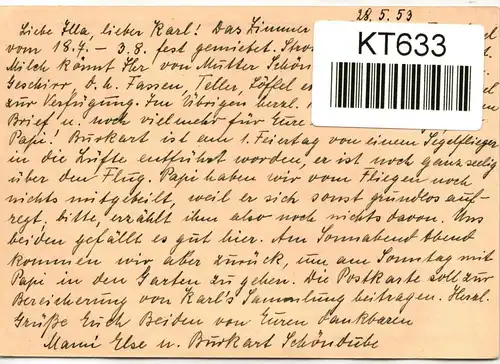 28.5.53
Liebe Illa, lieber Karl! Das Zimmer
vom 18.7. - 3.8. fest gemietet. Stro
Milch könnt Ihr von Mutter Schön
Geschirr d.h. Tassen, Teller, Löffel
zur Verfügung. Im Übrigen herzl.
Brief u. noch vielmehr für Eure
Papi! Burkart ist am 1. Feiertag von einem Segelflieger
in die Lüfte entführt worden, er ist noch ganz selig
über den Flug. Papi haben wir vom Fliegen noch
nichts mitgeteilt, weil er sich sonst grundlos auf-
regt, bitte, erzählt ihm also noch nichts davon. Uns
beiden gefällt es gut hier. Am Sonnabend Abend
kommen wir aber zurück, um am Sonntag mit
Papi in den Garten zu gehen. Die Postkarte soll zur
Bereicherung von Karl's Sammlung beitragen. Herzl.
Grüße Euch Beiden von Euren dankbaren
Mami Else u. Burkart Schöndube
KT633